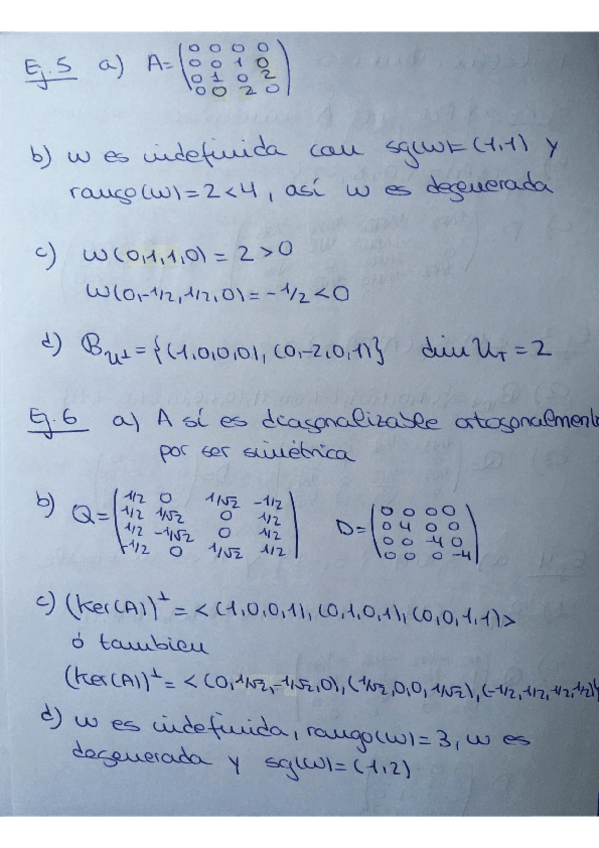 Ej.5 a) A= (0 0 0 0
0 0 1 0
0 1 0 2
0 0 2 0)
b) w es indefinida con sg(w)=(1,1) y
rango(w)=2<4, así w es degenerada
c) w(0,1,1,0)=2>0
w(0,-1/2,1/2,0)=-1/2<0
d) B_U⊥={(1,0,0,0), (0,-2,0,1)} dim U_T=2
Ej.6 a) A sí es diagonalizable ortogonalmente
por ser simétrica
b) Q= (1/2 0 1/√2 -1/2
1/2 1/√2 0 1/2
1/2 -1/√2 0 1/2
-1/2 0 1/√2 1/2) D= (0 0 0 0
0 4 0 0
0 0 -4 0
0 0 0 -4)
c) (Ker(A))⊥=<(1,0,0,1),(0,1,0,1),(0,0,1,1)>
ó tambien
(Ker(A))⊥=<(0,1/√2,-1/√2,0),(1/√2,0,0,1/√2),(-1/2,1/2,1/2,1/2)
d) w es indefinida, rango(w)=3, w es
degenerada y sg(w)=(1,2)